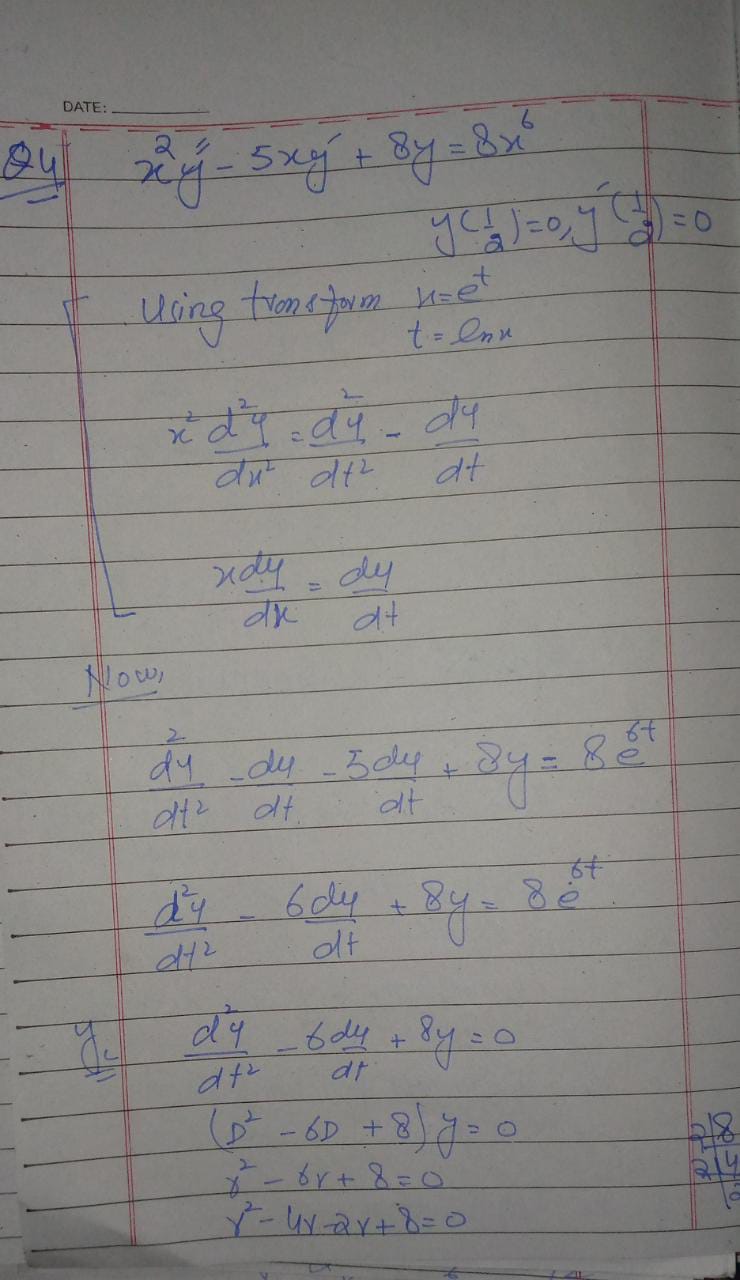 DATE:
Q4 x²y″ - 5xy′ + 8y = 8x⁶
y(1/2)=0, y′(1/2)=0
Using transform x=eᵗ
t = lnx
x² d²y/dx² = d²y/dt² - dy/dt
x dy/dx = dy/dt
Now,
d²y/dt² - dy/dt - 5dy/dt + 8y = 8e⁶ᵗ
d²y/dt² - 6dy/dt + 8y = 8e⁶ᵗ
y꜀ d²y/dt² - 6dy/dt + 8y = 0
(D² - 6D + 8)y = 0
2|8
r² - 6r + 8 = 0
2|4
r² - 4r - 2r + 8 = 0
2